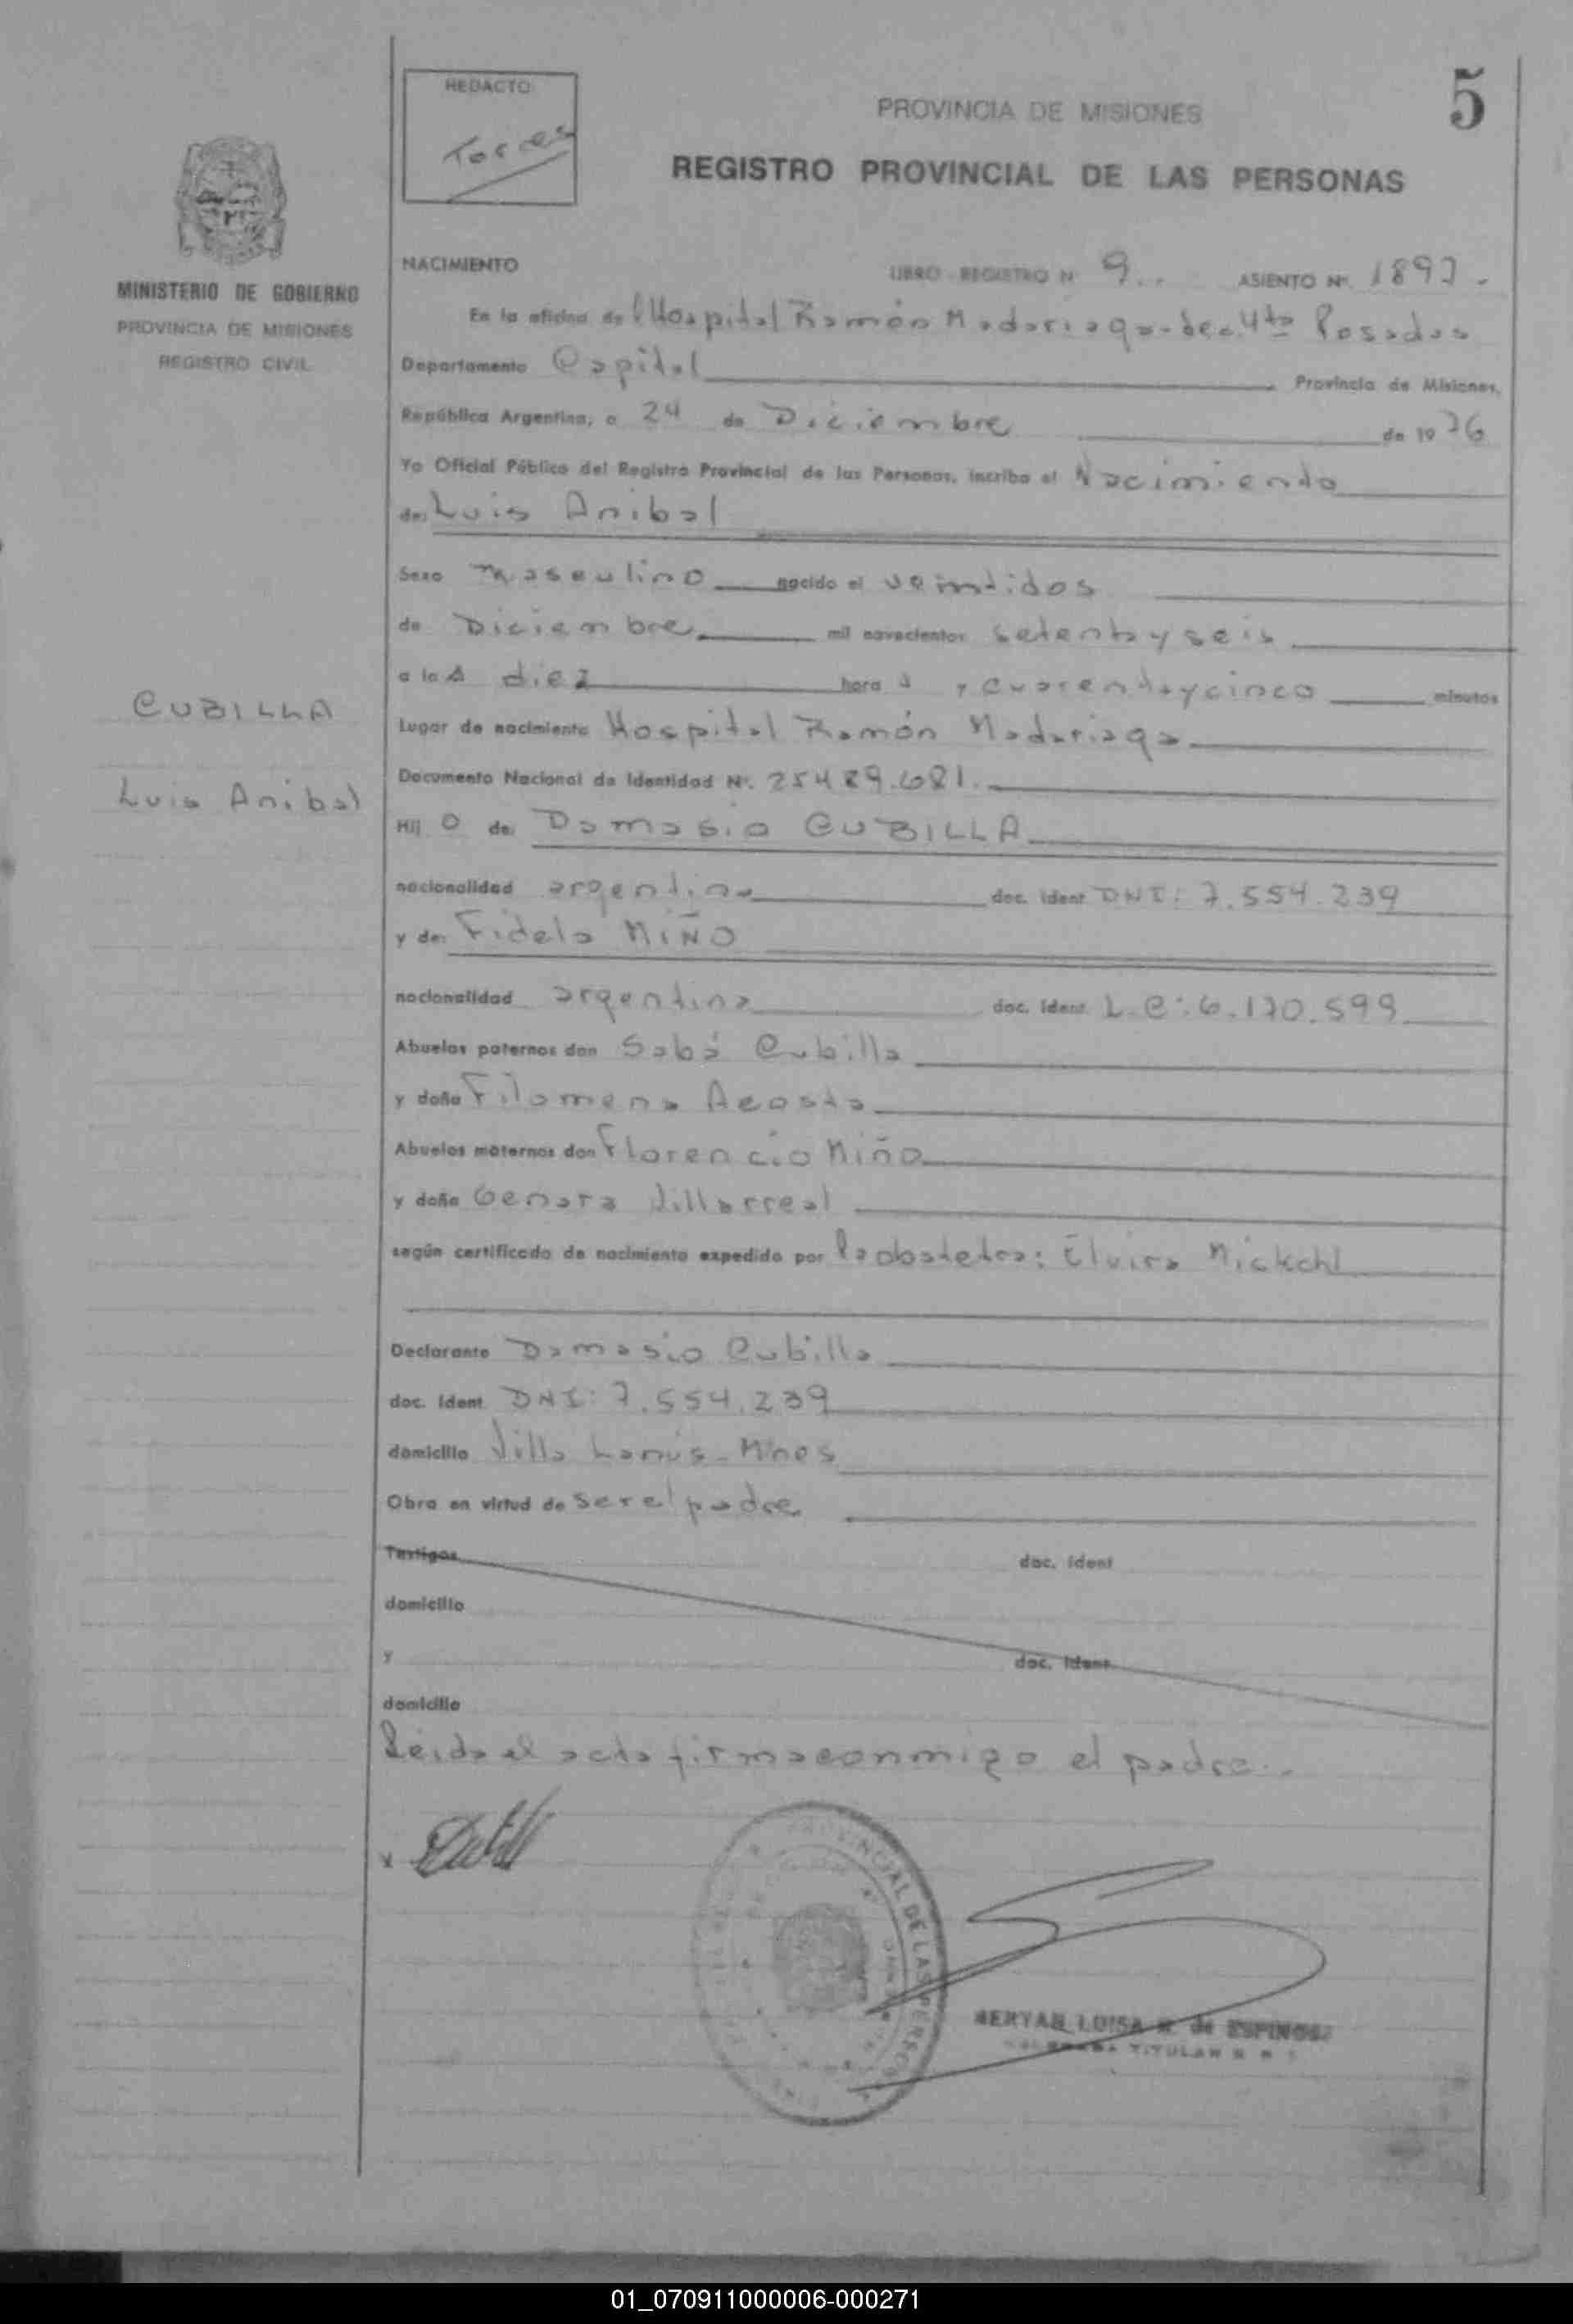 5
REDACTO
Torres
PROVINCIA DE MISIONES
REGISTRO PROVINCIAL DE LAS PERSONAS
MINISTERIO DE GOBIERNO
PROVINCIA DE MISIONES
REGISTRO CIVIL
CUBILLA
Luis Anibal
NACIMIENTO LIBRO REGISTRO Nº 9.. ASIENTO Nº. 1897.-
En la oficina de l Hospital Ramón Madariaga-Sec.4ta Posadas
Departamento Capital Provincia de Misiones,
República Argentina, a 24 de Diciembre de 1976
Yo Oficial Público del Registro Provincial de las Personas, inscribo el Nacimiento
de: Luis Anibal
Sexo masculino nacido el veintidos
de Diciembre mil novecientos setenta y seis
a las diez horas y cuarenta y cinco minutos
Lugar de nacimiento Hospital Ramón Madariaga
Documento Nacional de Identidad Nº. 25489.681.
Hij o de: Damasio CUBILLA
nacionalidad argentina doc. ident DNI: 7.554.239
y de: Fidela MIÑO
nacionalidad argentina doc. ident L.C: 6.170.599
Abuelos paternos don Sabá Cubilla
y doña Filomena Acosta
Abuelos maternos don Florencio Miño
y doña Genara Villarreal
según certificado de nacimiento expedido por la obstetra: Elvira Mickchl
Declarante Damasio Cubilla
doc. ident DNI: 7.554.239
domicilio Villa Lanús-Mnes
Obra en virtud de ser el padre
Testigos doc. ident
domicilio
y doc. ident
domicilio
Leida el acta firma conmigo el padre..
x
PROVINCIAL DE LAS PERSONAS
LUISA de ESPINOSA
TITULAR
01_070911000006-000271